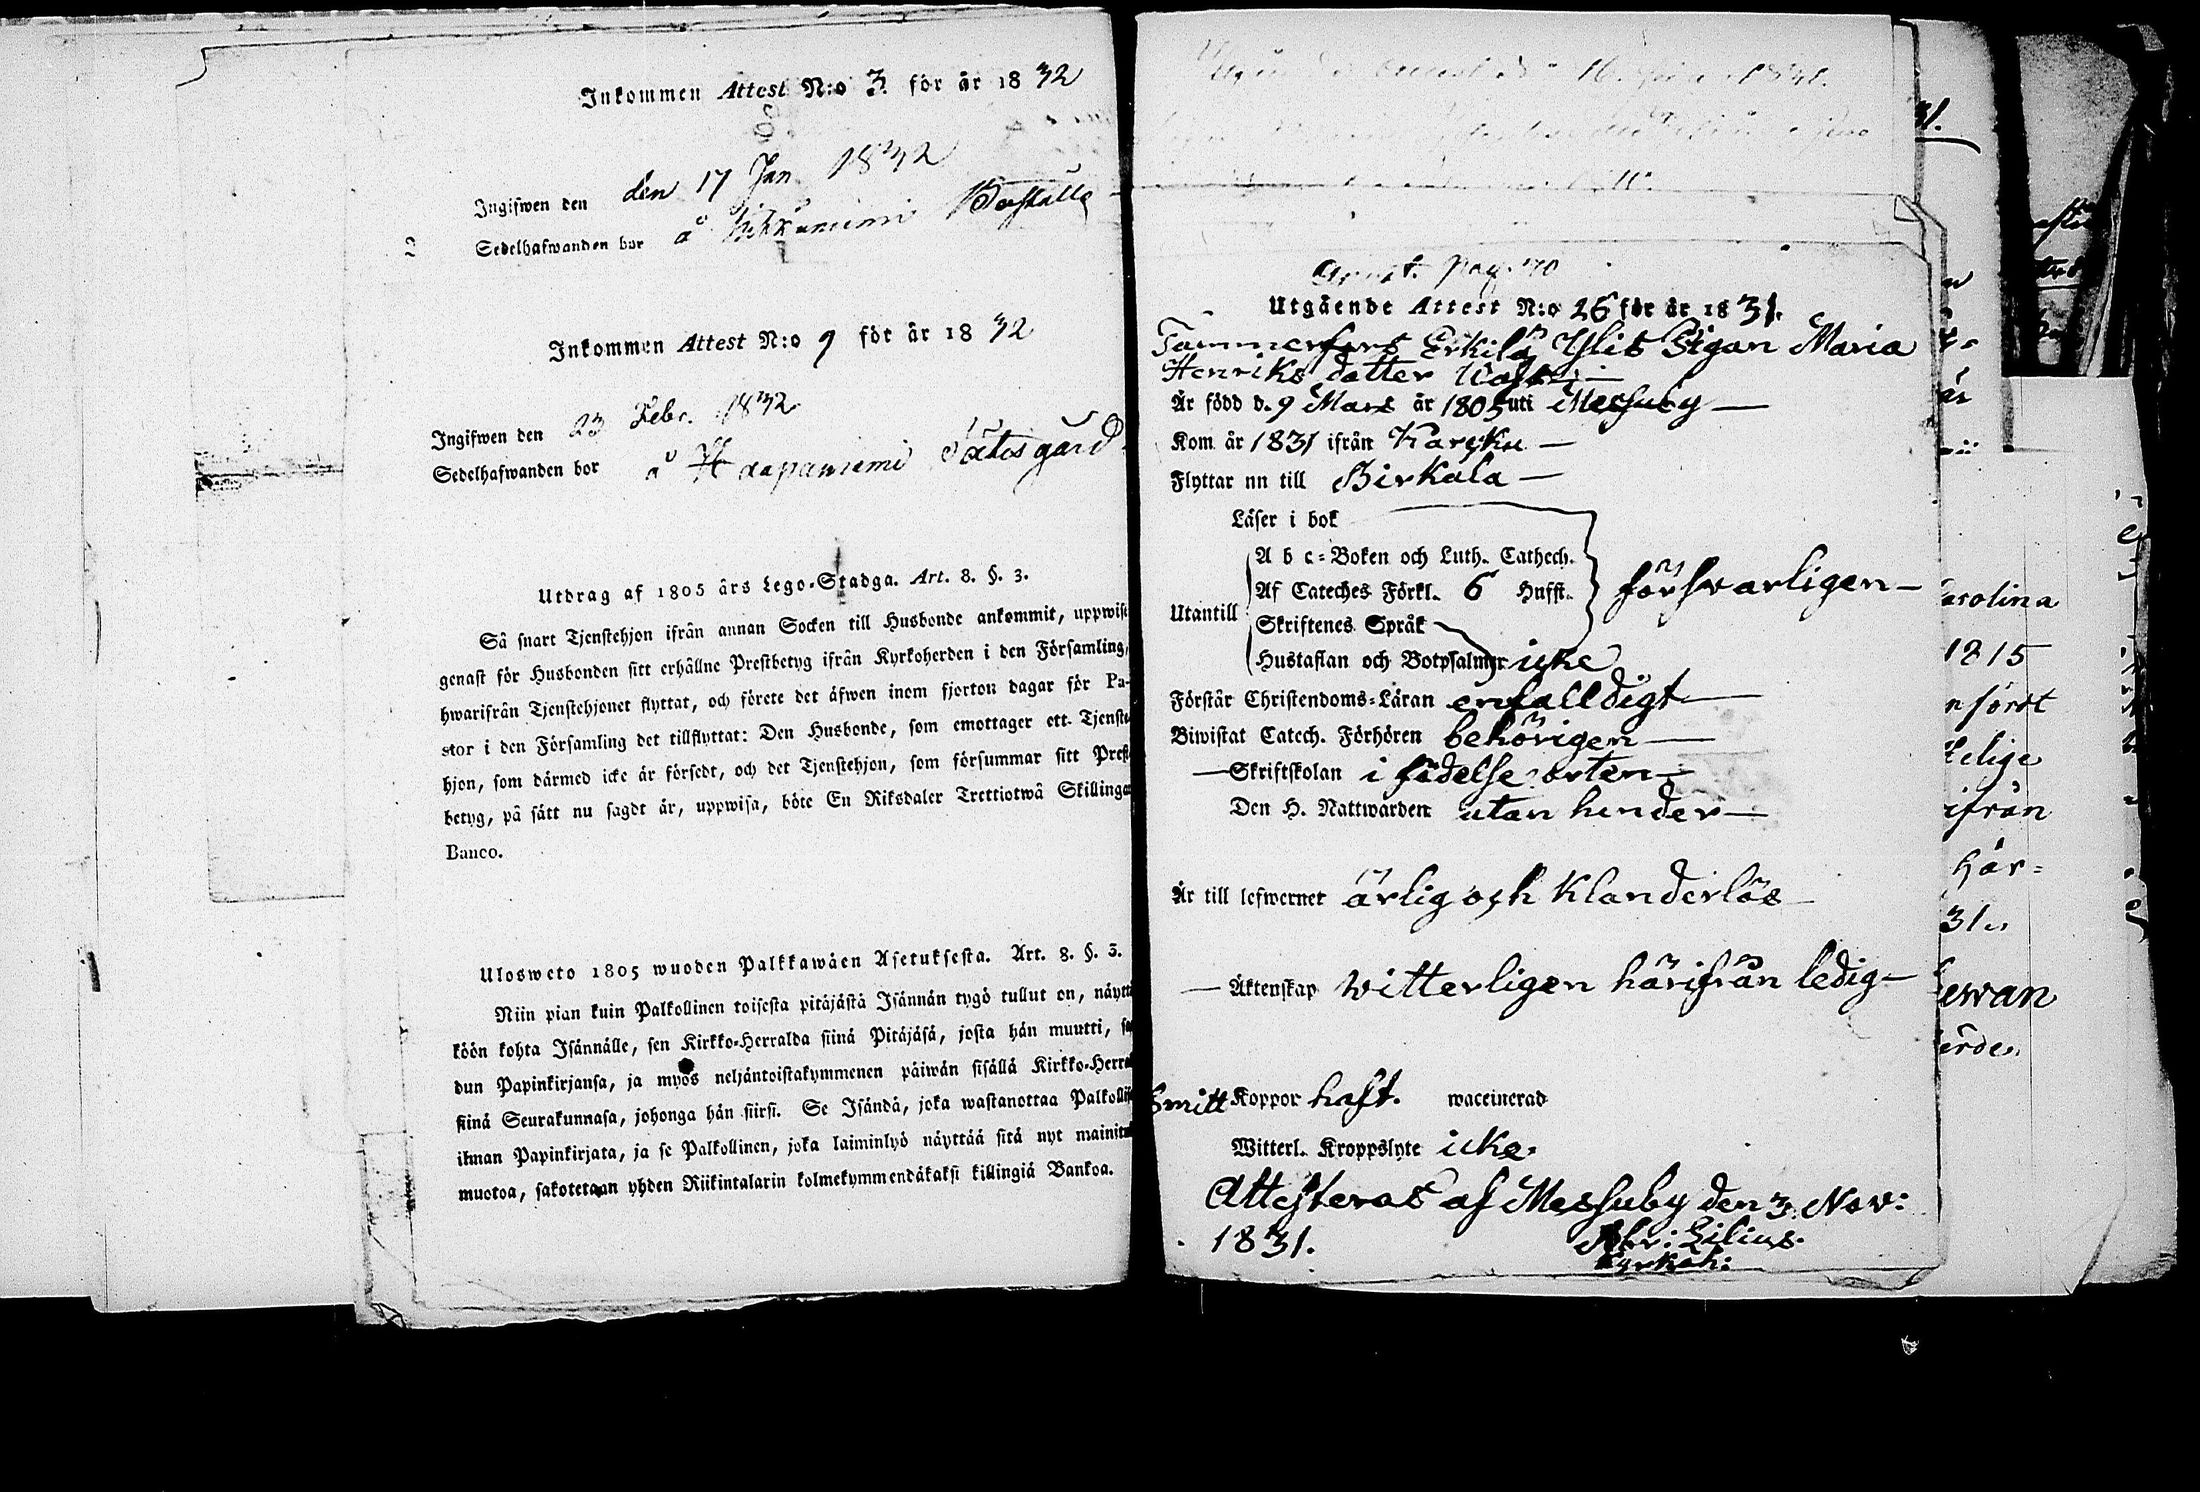 Inkommen Attest N:o 3. för år 1832
Ingifwen den den 17 Jan 1832
Sedelhafwanden bor å
2
Inkommen Attest N:o 9 för år 1832
Ingifwen den 23 Febr. 1832
Sedelhafwanden bor å Haapaniemi gård
Utdrag af 1805 års Lego-Stadga. Art. 8. §. 3.
Så snart Tjenstehjon ifrån annan Socken till Husbonde ankommit, uppwise
genast för Husbonden sitt erhållne Prestbetyg ifrån Kyrkoherden i den Församling,
hwarifrån Tjenstehjonet flyttat, och förete det äfwen inom fjorton dagar för Pa-
stor i den Församling det tillflyttat: Den Husbonde, som emottager ett Tjenste
hjon, som därmed icke är försedt, och det Tjenstehjon, som försummar sitt Prest
betyg, på sätt nu sagdt är, uppwisa, böte En Riksdaler Trettiotwå Skillingar
Banco.
Ulosweto 1805 wuoden Palkkawäen Asetuksesta. Art. 8. §. 3.
Niin pian kuin Palkollinen toisesta pitäjästä Isännän tygö tullut on, näyttä
köön kohta Isännälle, sen Kirkko-Herralda siinä Pitäjäsä, josta hän muutti, sa
dun Papinkirjansa, ja myös neljäntoistakymmenen päiwän sisällä Kirkko-Herral
siinä Seurakunnasa, johonga hän siirsi. Se Isändä, joka wastanottaa Palkollis
ilman Papinkirjata, ja se Palkollinen, joka laiminlyö näyttää sitä nyt mainitul
muotoa, sakotetaan yhden Riikintalarin kolmekymmendäkaksi killingiä Bankoa.
1831.
pag. 70
Utgående Attest N:o 26 för år 1831.
Tammerfors Erkilä Ylis Pigan Maria
Henriks dotter
Är född d. 9 Mars år 1805 uti Messuby
Kom år 1831 ifrån Karcku
Flyttar nu till Birkala
Läser i bok
Utantill
A b c-Boken och Luth. Cathech.
Af Cateches Förkl. 6 Hufst. försvarligen
Skriftenes Språk
Hustaflan och Botpsalmer icke
Förstår Christendoms-Läran enfalldigt
Biwistat Catech. Förhören behörigen
Skriftskolan i födelse orten
Den H. Nattwarden utan hinder
Är till lefwernet ärlig och klanderlös
Äktenskap witterligen härifrån ledig
Smitt Koppor haft. waccinerad
Witterl. Kroppslyte icke.
Attesteras af Messuby den 3. Nov:
1831. Abr: Lilius.
Kyrkoh:
31.
1815
ifrån
här=
31.